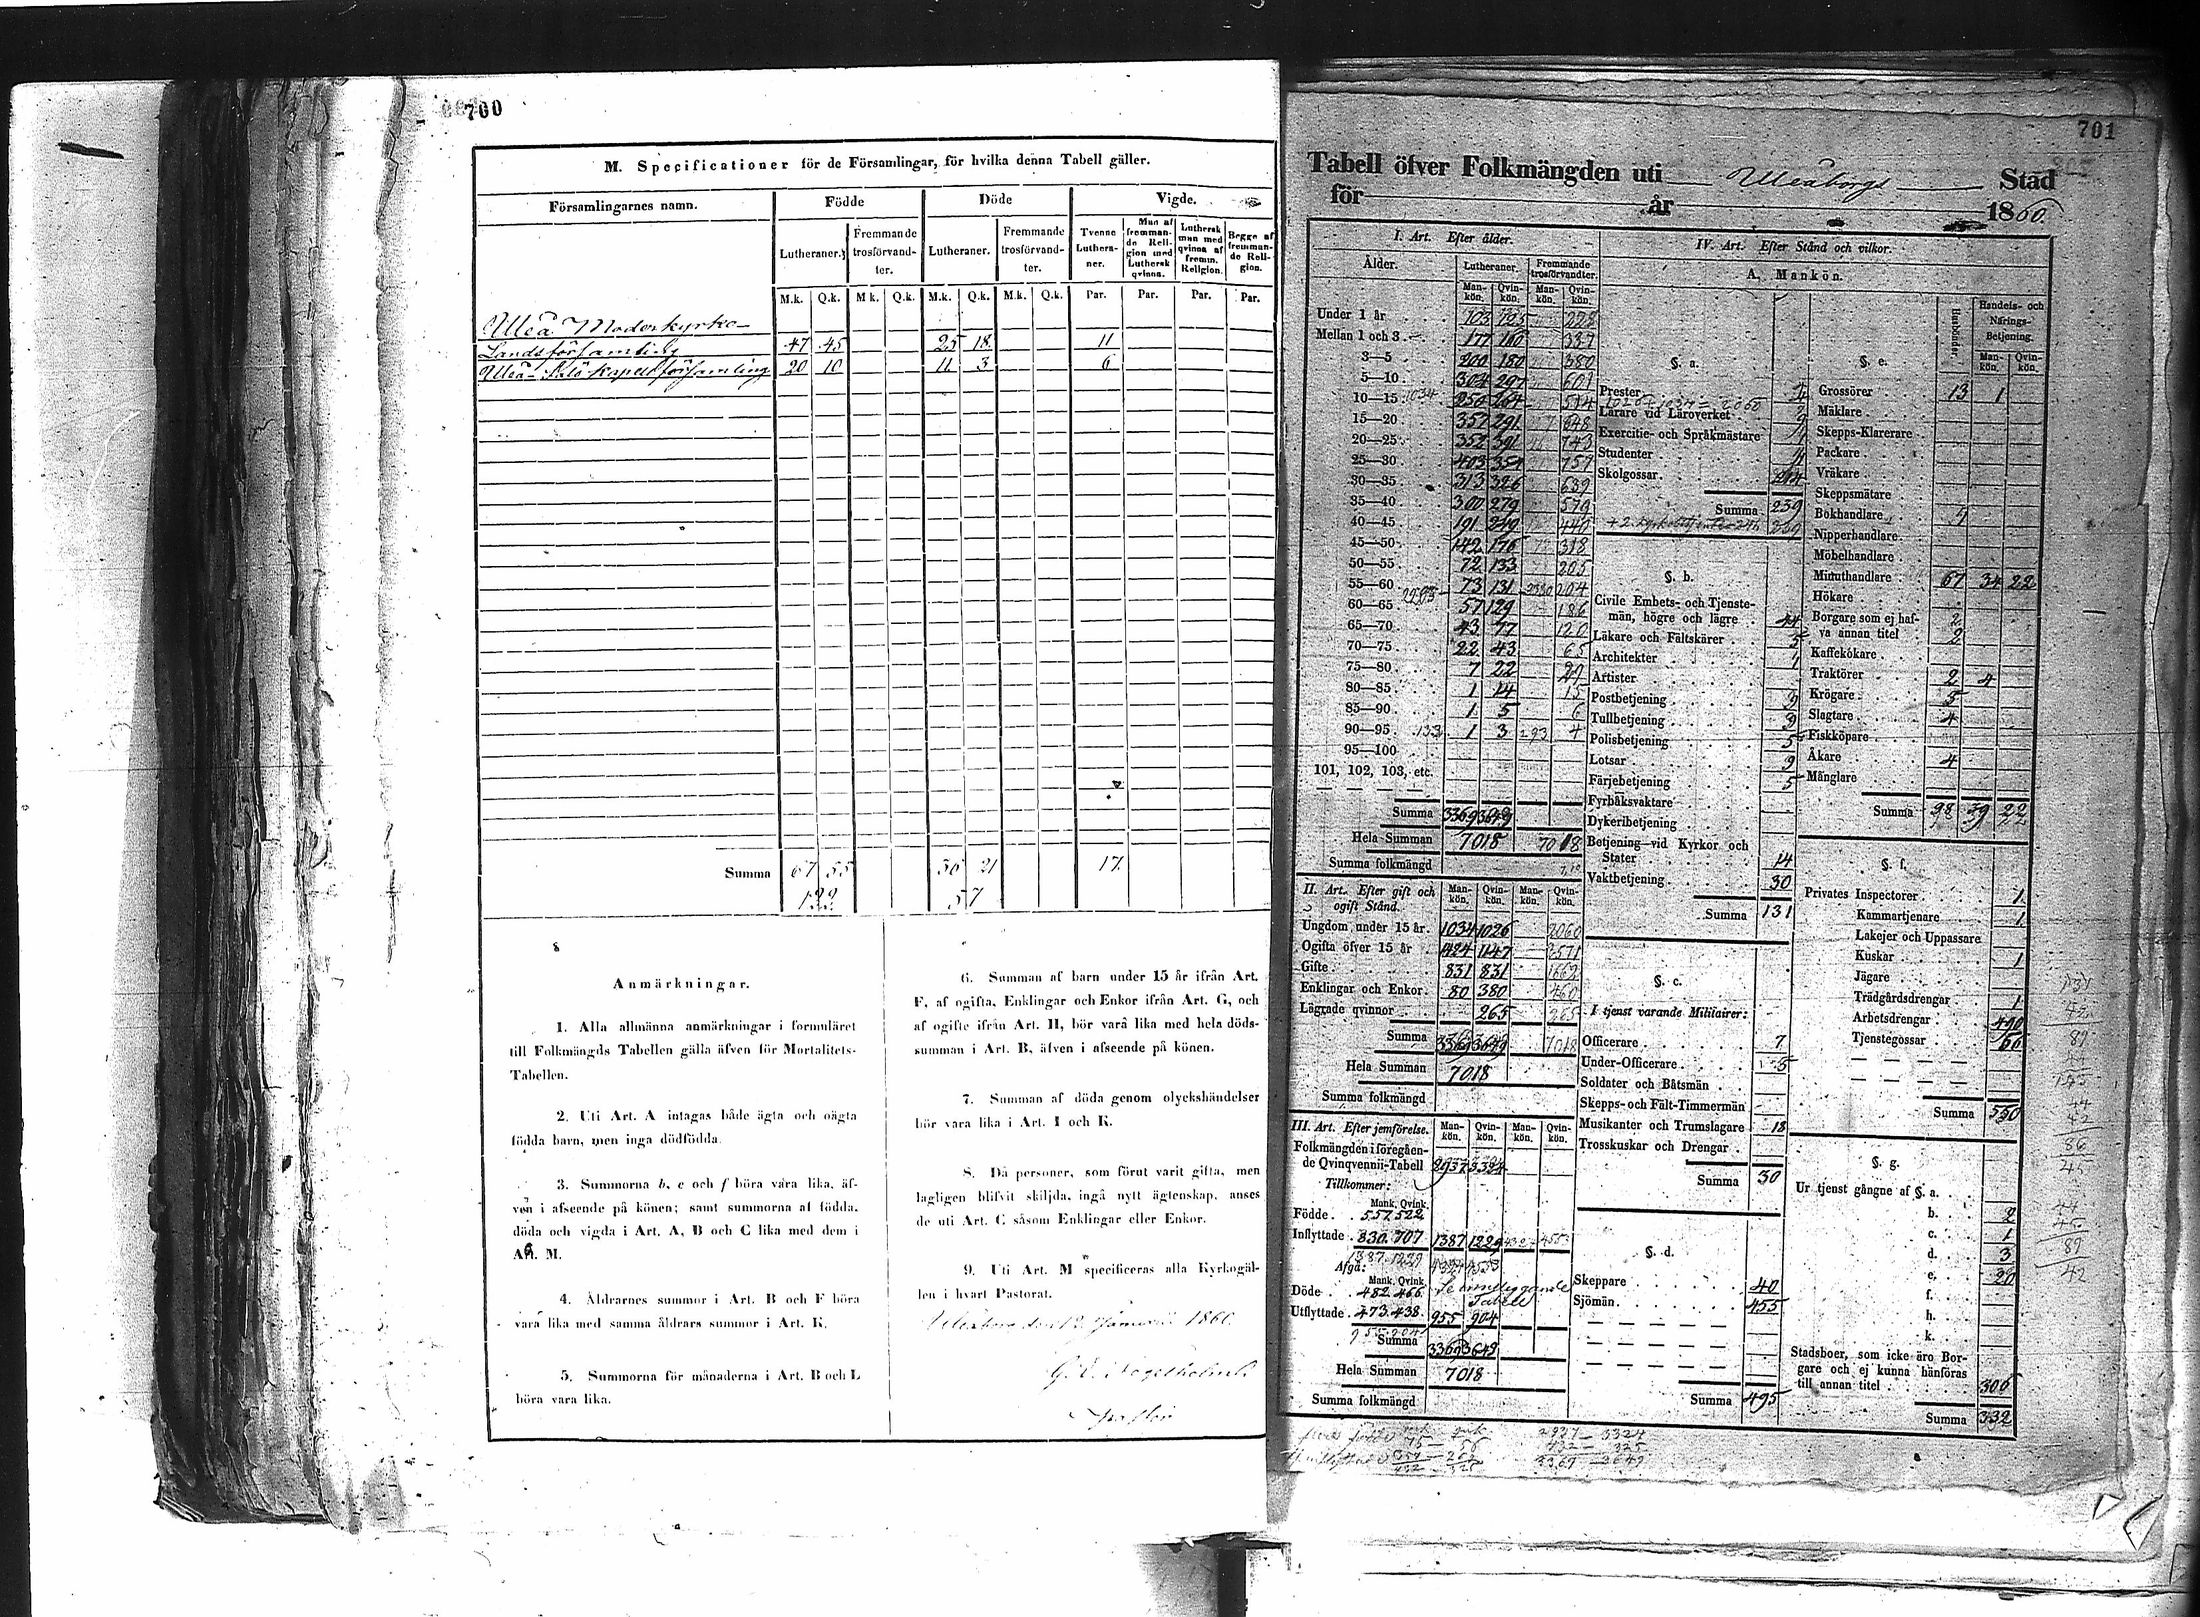 700
M. Specificationer för de Församlingar, för hvilka denna Tabell gäller.
Församlingarnes namn.
Födde
Döde
Vigde.
Lutheraner.
Fremmande trosförvandter.
Lutheraner.
Fremmande trosförvandter.
Tvenne Lutheraner.
Man af fremmande Religion med Luthersk qvinna.
Luthersk man med qvinna af fremm. Religion.
Begge af fremmande Religion.
M.k. Q.k. M k. Q.k. M.k. Q.k. M.k. Q.k. Par. Par. Par. Par.
Uleå Moderkyrko-
Landsförsamling 47 45 25 18 11
Uleå-Salo kapellförsamling 20 10 11 3 6
Summa 67 55 36 21 17.
122 57
Anmärkningar.
1. Alla allmänna anmärkningar i formuläret
till Folkmängds Tabellen gälla äfven för Mortalitets-
Tabellen.
2. Uti Art. A intagas både ägta och oägta
födda barn, men inga dödfödda.
3. Summorna b, c och f böra vara lika, äf-
ven i afseende på könen; samt summorna af födda,
döda och vigda i Art. A, B och C lika med dem i
Art. M.
4. Åldrarnes summor i Art. B och F böra
vara lika med samma åldrars summor i Art. K.
5. Summorna för månaderna i Art. B och L
böra vara lika.
6. Summan af barn under 15 år ifrån Art.
F, af ogifta, Enklingar och Enkor ifrån Art. G, och
af ogifte ifrån Art. H, bör vara lika med hela döds-
summan i Art. B, äfven i afseende på könen.
7. Summan af döda genom olyckshändelser
bör vara lika i Art. I och K.
8. Då personer, som förut varit gifta, men
lagligen blifvit skiljda, ingå nytt ägtenskap, anses
de uti Art. C såsom Enklingar eller Enkor.
9. Uti Art. M specificeras alla Kyrkogäl-
len i hvart Pastorat.
701
Tabell öfver Folkmängden uti Uleåborgs Stad
för år 1860.
I. Art. Efter ålder.
Ålder.
Lutheraner.
Fremmande trosförvandter.
Mankön. Qvinkön. Mankön. Qvinkön.
Under 1 år 103 125 228
Mellan 1 och 3 177 160 337
3—5 200 180 380
5—10 304 297 601
10—15 1034 250 264 514
15—20 357 291 648
20—25 352 391 743
25—30 403 354 757
30—35 313 326 639
35—40 300 279 579
40—45 191 249 440
45—50 142 176 318
50—55 72 133 205
55—60 73 131 204
60—65 57 129 186
65—70 43 77 120
70—75 22 43 65
75—80 7 22 29
80—85 1 14 15
85—90 1 5 6
90—95 133 1 3 293 4
95—100
101, 102, 103, etc.
Summa 3369 3649
Hela Summan 7018 7018
Summa folkmängd
II. Art. Efter gift och ogift Stånd.
Mankön. Qvinkön. Mankön. Qvinkön.
Ungdom under 15 år. 1034 1026 2060
Ogifta öfver 15 år 1424 1147 2571
Gifte 831 831 1662
Enklingar och Enkor 80 380 460
Lägrade qvinnor 265 265
Summa 3369 3649 7018
Hela Summan 7018
Summa folkmängd
III. Art. Efter jemförelse.
Mankön. Qvinkön. Mankön. Qvinkön.
Folkmängden i föregåen-
de Qvinqvennii-Tabell 2937 3324
Tillkommer:
Mank. Qvink.
Födde 557 522
Inflyttade 830 707 1387 1229 4324 4553
1387 1229
Afgå: 4324 4553
Mank. Qvink.
Döde 482 466
Utflyttade 473 438 955 904
955 904
Summa 3369 3649
Hela Summan 7018
Summa folkmängd
IV. Art. Efter Stånd och vilkor.
A. Mankön.
§. a.
Prester 4
1026+1034=2060
Lärare vid Läroverket
Exercitie- och Språkmästare
Studenter
Skolgossar
Summa 239
§. b.
Civile Embets- och Tjenste-
män, högre och lägre 44
Läkare och Fältskärer 5
Architekter 1
Artister
Postbetjening 3
Tullbetjening
Polisbetjening 5
Lotsar 9
Färjebetjening 5
Fyrbåksväktare
Dykeribetjening
Betjening vid Kyrkor och
Stater 14
Vaktbetjening 30
Summa 131
§. c.
I tjenst varande Militairer:
Officerare 7
Under-Officerare 5
Soldater och Båtsmän
Skepps- och Fält-Timmermän
Musikanter och Trumslagare 18
Trosskuskar och Drengar
Summa 30
§. d.
Skeppare 40
Sjömän 455
Summa 495
§. e.
Husbönder.
Handels- och Närings-Betjening.
Mankön. Qvinkön.
Grossörer 13 1
Mäklare
Skepps-Klarerare
Packare
Vräkare
Skeppsmätare
Bokhandlare
Nipperhandlare
Möbelhandlare
Minuthandlare 67 34 22
Hökare
Borgare som ej haf- 2
va annan titel 2
Kaffekokare
Traktörer 2 4
Krögare 5
Slagtare 4
Fiskköpare
Åkare 4
Månglare
Summa 98 39 22
§. f.
Privates Inspectorer 1
Kammartjenare 1
Lakejer och Uppassare
Kuskar 1
Jägare
Trädgårdsdrengar 1
Arbetsdrengar 490
Tjenstegossar
Summa 550
§. g.
Ur tjenst gångne af §. a.
b. 2
c. 1
d. 3
e. 20
f.
h.
k.
Stadsboer, som icke äro Bor-
gare och ej kunna hänföras
till annan titel 306
Summa 332
2937 — 3324
432 — 325
3369 — 3649